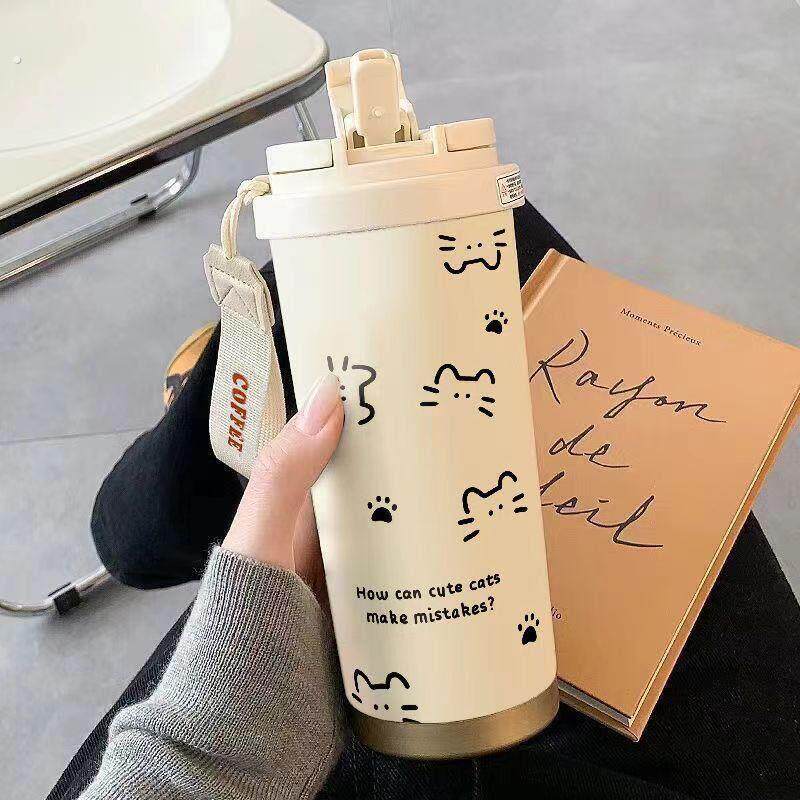 COFFEE
How can cute cats
make mistakes?
Moments Précieux
Rayon
de